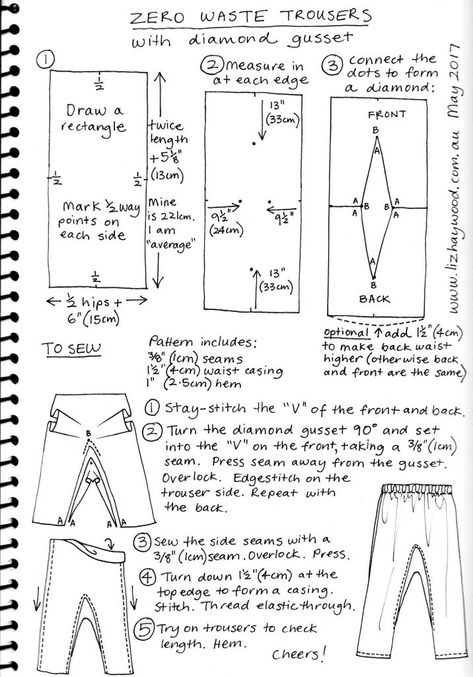 ZERO WASTE TROUSERS
with diamond gusset
①
1/2
Draw a
rectangle
1/2
1/2
Mark 1/2 way
points on
each side
1/2
twice
length
+5 1/8"
(13cm)
Mine
is 221cm.
I am
"average"
1/2 hips +
6" (15cm)
② Measure in
at each edge
13"
(33cm)
9 1/2"
(24cm)
9 1/2"
13"
(33cm)
③ connect the
dots to form
a diamond:
FRONT
B
A A
A B B A
A A
B
BACK
optional ↑ add 1 1/2" (4cm)
to make back waist
higher (otherwise back
and front are the same)
www.lizhaywood.com.au May 2017
TO SEW
Pattern includes:
3/8" (1cm) seams
1 1/2" (4cm) waist casing
1" (2.5cm) hem
B
A A A A
① Stay-stitch the "V" of the front and back.
② Turn the diamond gusset 90° and set
into the "V" on the front, taking a 3/8" (1cm)
seam. Press seam away from the gusset.
Overlock. Edgestitch on the
trouser side. Repeat with
the back.
③ Sew the side seams with a
3/8" (1cm) seam. Overlock. Press.
④ Turn down 1 1/2" (4cm) at the
top edge to form a casing.
Stitch. Thread elastic through.
⑤ Try on trousers to check
length. Hem.
Cheers!